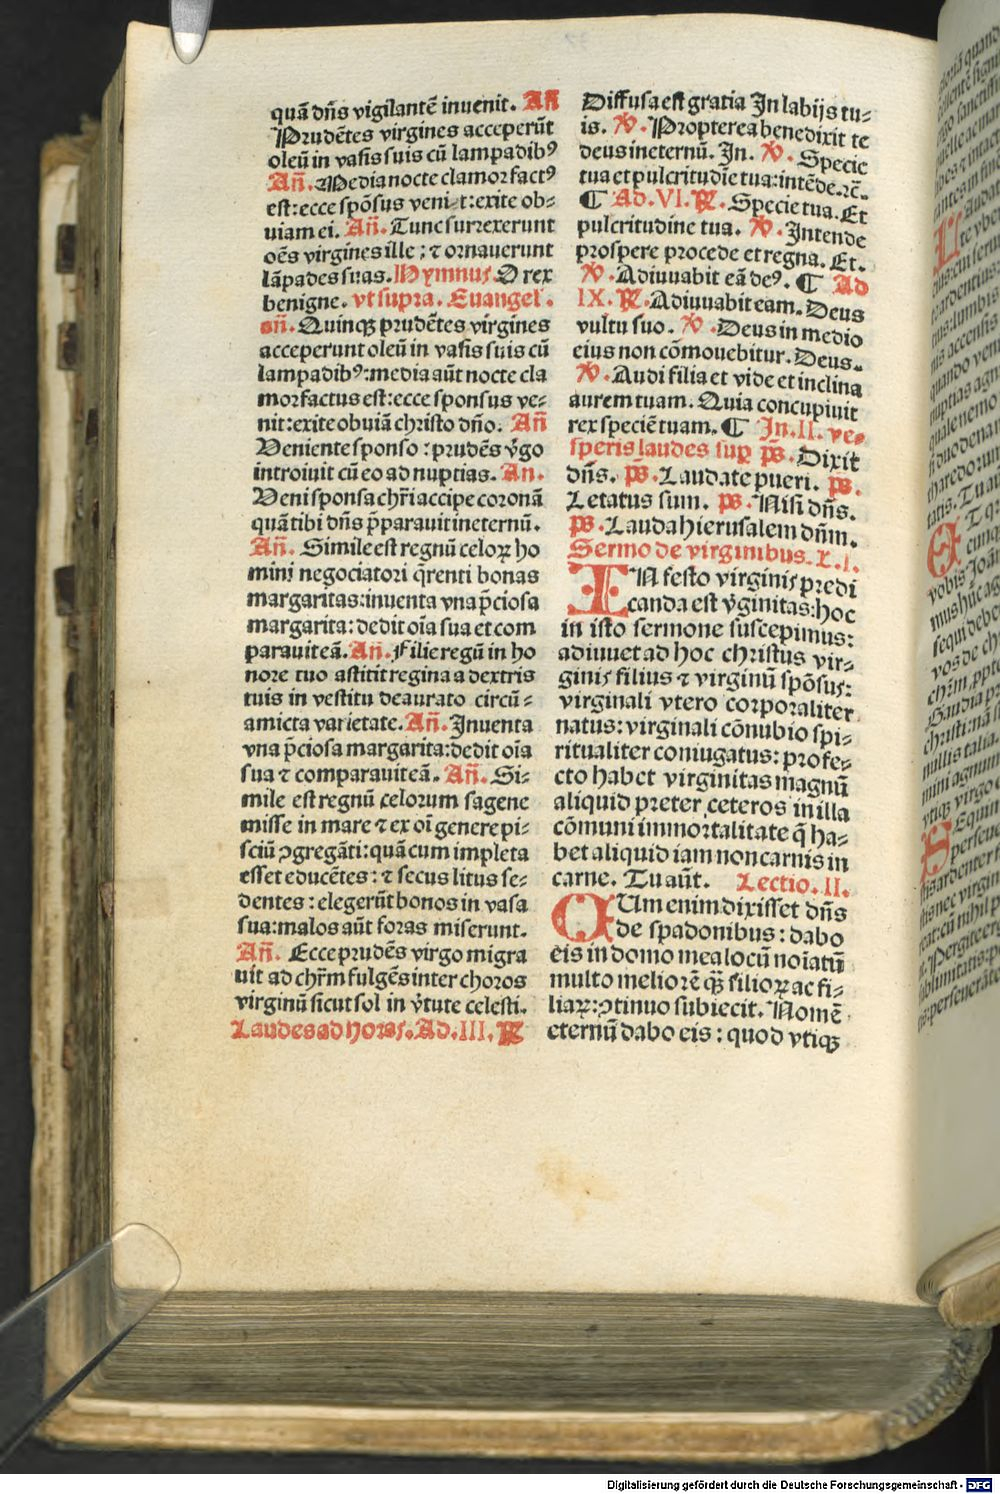 quā dn̄s vigilantē inuenit. Añ
Prudētes virgines acceperūt
oleū in vasis suis cū lampadibꝰ
Añ. Media nocte clamor factꝰ
est: ecce spōsus venit: exite ob-
uiam ei. Añ. Tunc surrexerunt
oēs virgines ille: ⁊ ornauerunt
lāpades suas. Hymnus. O rex
benigne. vt supra. Euangel'.
añ. Quinqꝫ prudētes virgines
acceperunt oleū in vasis suis cū
lampadibꝰ: media aūt nocte cla
mor factus est: ecce sponsus ve-
nit: exite obuiā christo dño. Añ
Veniente sponso: prudēs v̓go
introiuit cū eo ad nuptias. An.
Veni sponsa chr̄i accipe coronā
quā tibi dn̄s p̄parauit in eternū.
Añ. Simile est regnū celoꝝ ho
mini negociatori q̄renti bonas
margaritas: inuenta vna p̄ciosa
margarita: dedit oīa sua et com
parauit eā. Añ. Filie regū in ho
nore tuo astitit regina a dextris
tuis in vestitu deaurato circū-
amicta varietate. Añ. Inuenta
vna p̄ciosa margarita: dedit oīa
sua ⁊ comparauit eā. Añ. Si-
mile est regnū celorum sagene
misse in mare ⁊ ex oī genere pi-
sciū ꝯgregāti: quā cum impleta
esset educētes: ⁊ secus litus se-
dentes: elegerūt bonos in vasa
sua: malos aūt foras miserunt.
Añ. Ecce prudēs virgo migra
uit ad chr̄m fulgēs inter choros
virginū sicut sol in v̓tute celesti.
Laudes ad horas. Ad. III. ℞
Diffusa est gratia In labijs tu-
is. ℣. Propterea benedixit te
deus in eternū. In. ℣. Specie
tua et pulcritudīe tua: intēde. rē.
¶ Ad. VI. ℞. Specie tua. Et
pulcritudine tua. ℣. Intende
prospere procede et regna. Et.
℣. Adiuuabit eā deꝰ. ¶ Ad
IX. ℞. Adiuuabit eam. Deus
vultu suo. ℣. Deus in medio
eius non cōmouebitur. Deus.
℣. Audi filia et vide et inclina
aurem tuam. Quia concupiuit
rex speciē tuam. ¶ In. II. ve-
speris laudes sup̄ p̄s. Dixit
dn̄s. p̄s. Laudate pueri. p̄s.
Letatus sum. p̄s. Nisi dn̄s.
p̄s. Lauda hierusalem dn̄m.
Sermo de virginibus. x. l.
IN festo virginis predi
canda est v̓ginitas: hoc
in isto sermone suscepimus:
adiuuet ad hoc christus vir-
ginis filius ⁊ virginū spōsus:
virginali vtero corporaliter
natus: virginali cōnubio spi-
ritualiter coniugatus: profe-
cto habet virginitas magnū
aliquid preter ceteros in illa
cōmuni immortalitate q̄ ha-
bet aliquid iam non carnis in
carne. Tu aūt. Lectio. II.
CUm enim dixisset dn̄s
de spadonibus: dabo
eis in domo mea locū noīatū
multo meliorē qꝫ̄ filioꝝ ac fi-
liaꝝ: ꝯtinuo subiecit. Nomē
eternū dabo eis: quod vtiqꝫ
Digitalisierung gefördert durch die Deutsche Forschungsgemeinschaft - DFG